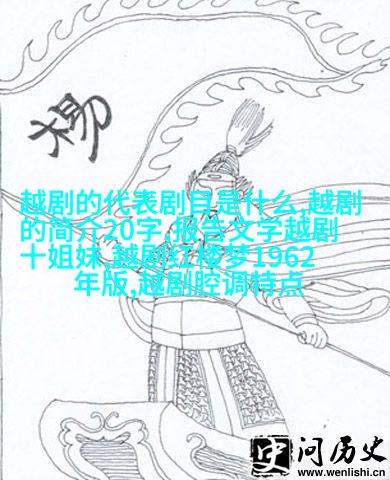 楊
越剧的代表剧目是什么,越剧
的简介20字,报告文学越剧
十姐妹,越剧红楼梦1962
年版,越剧腔调特点
史 问历史
www.wenlishi.cn